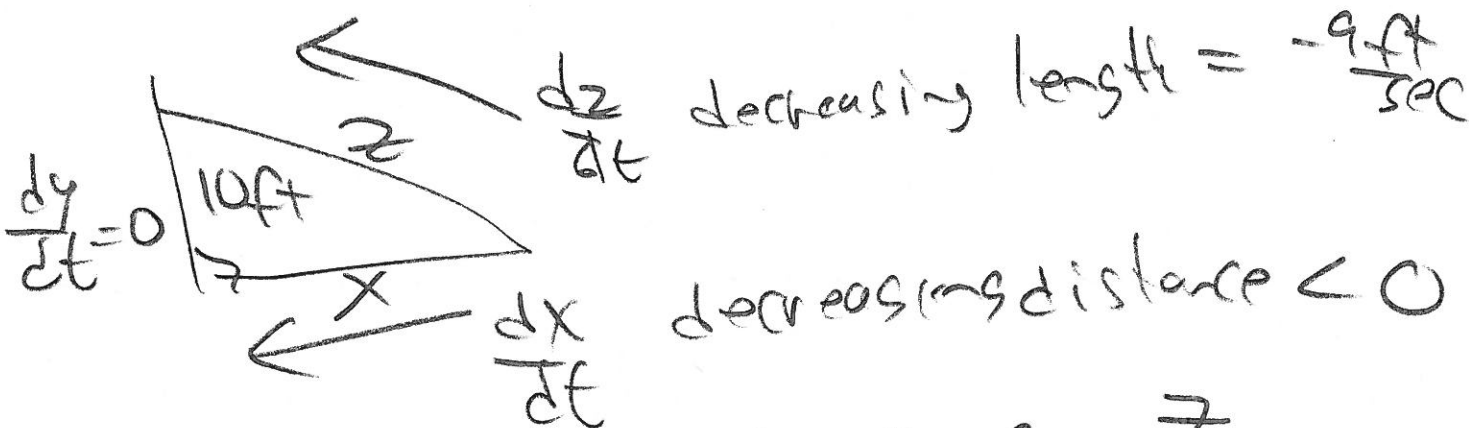 dz/dt decreasing length = -9 ft/sec
z
dy/dt = 0
10ft
x
dx/dt decreasing distance < 0